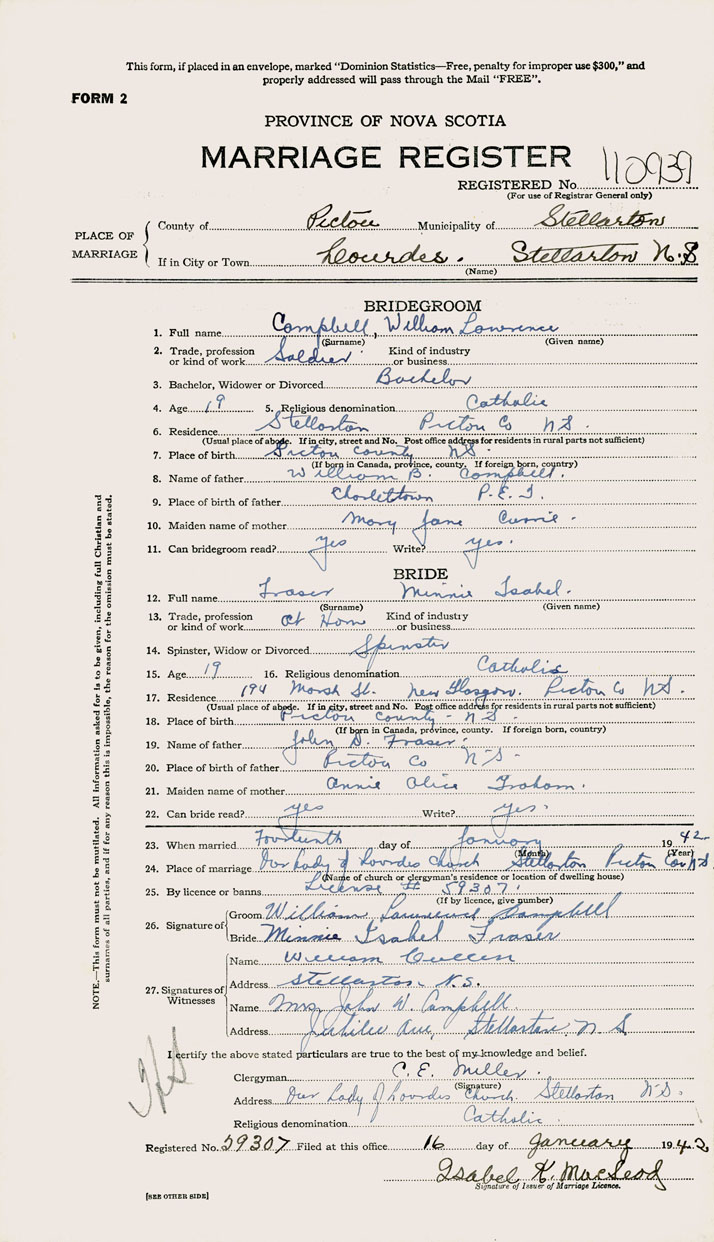 This form, if placed in an envelope, marked "Dominion Statistics—Free, penalty for improper use $300," and
properly addressed will pass through the Mail "FREE".
FORM 2
PROVINCE OF NOVA SCOTIA
MARRIAGE REGISTER
REGISTERED No. 110939
(For use of Registrar General only)
PLACE OF MARRIAGE
County of Pictou Municipality of Stellarton
If in City or Town Lourdes. Stellarton N.S
(Name)
BRIDEGROOM
1. Full name Campbell, William Lawrence
(Surname) (Given name)
2. Trade, profession or kind of work Soldier Kind of industry or business
3. Bachelor, Widower or Divorced Bachelor
4. Age 19 5. Religious denomination Catholic
6. Residence Stellarton Pictou Co NS.
(Usual place of abode. If in city, street and No. Post office address for residents in rural parts not sufficient)
7. Place of birth Pictou County NS.
(If born in Canada, province, county. If foreign born, country)
8. Name of father William B. Campbell.
9. Place of birth of father Charlottown P.E.I.
10. Maiden name of mother Mary Jane Currie.
11. Can bridegroom read? yes Write? yes.
BRIDE
12. Full name Fraser Minnie Isabel.
(Surname) (Given name)
13. Trade, profession or kind of work At Home Kind of industry or business
14. Spinster, Widow or Divorced Spinster
15. Age 19 16. Religious denomination Catholic
17. Residence 194 Marsh St. New Glasgow. Pictou Co NS.
(Usual place of abode. If in city, street and No. Post office address for residents in rural parts not sufficient)
18. Place of birth Pictou County - N S.
(If born in Canada, province, county. If foreign born, country)
19. Name of father John D. Fraser.
20. Place of birth of father Pictou Co N-S-
21. Maiden name of mother Annie Alice Graham.
22. Can bride read? yes Write? yes.
23. When married Fourteenth day of January 1942
(Month) (Year)
24. Place of marriage Our Lady of Lourdes Church Stellarton Pictou Co NS
(Name of church or clergyman's residence or location of dwelling house)
25. By licence or banns License # 59307.
(If by licence, give number)
26. Signature of
Groom William Lawrence Campbell
Bride Minnie Isabel Fraser
27. Signatures of Witnesses
Name William Cullen
Address Stellarton N.S.
Name Mrs John W. Campbell.
Address Jubilee Ave, Stellarton, N S
I certify the above stated particulars are true to the best of my knowledge and belief.
Clergyman C. E. Miller.
(Signature)
Address Our Lady of Lourdes Church. Stellarton N.S.
Religious denomination Catholic.
Registered No. 59307 Filed at this office 16 day of January 1942
Isabel K. MacLeod
Signature of Issuer of Marriage Licence.
[SEE OTHER SIDE]
NOTE.—This form must not be mutilated. All information asked for is to be given, including full Christian and
surnames of all parties, and if for any reason this is impossible, the reason for the omission must be stated.